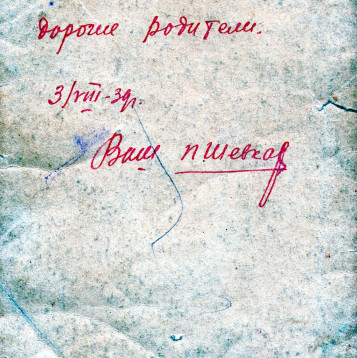 дорогие родители.
3/VIII-39г.
Ваш